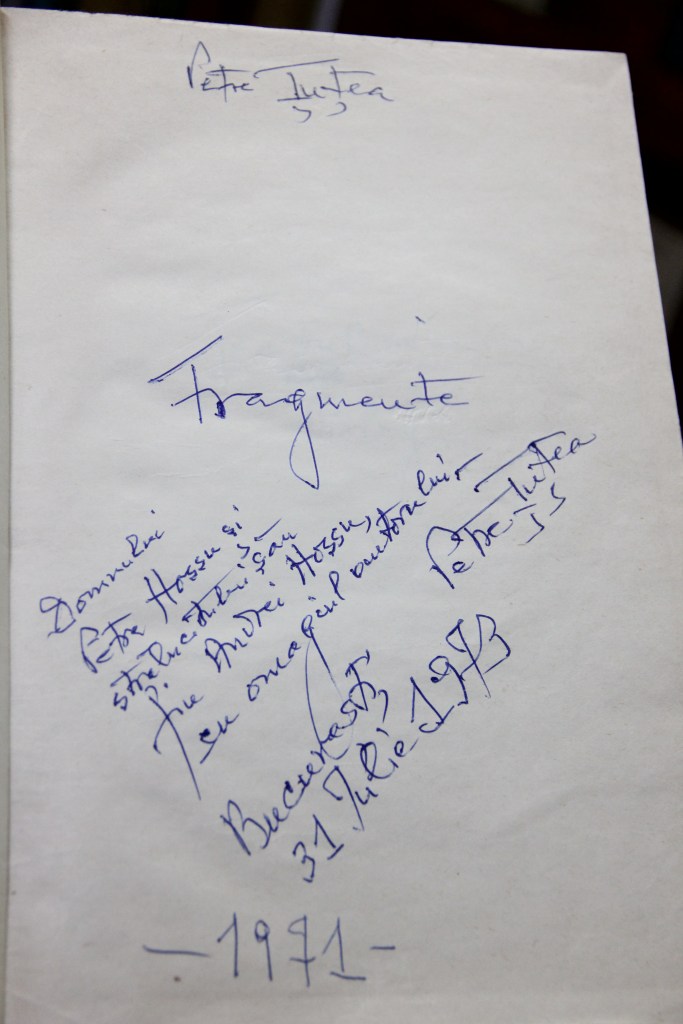 Petre Țuțea
Fragmente
Domnului
Petre Hossu și
strălucitului său
fiu Andrei Hossu,
cu omagiul autorului
Petre Țuțea
București
31 Iulie 1973
— 1971 —